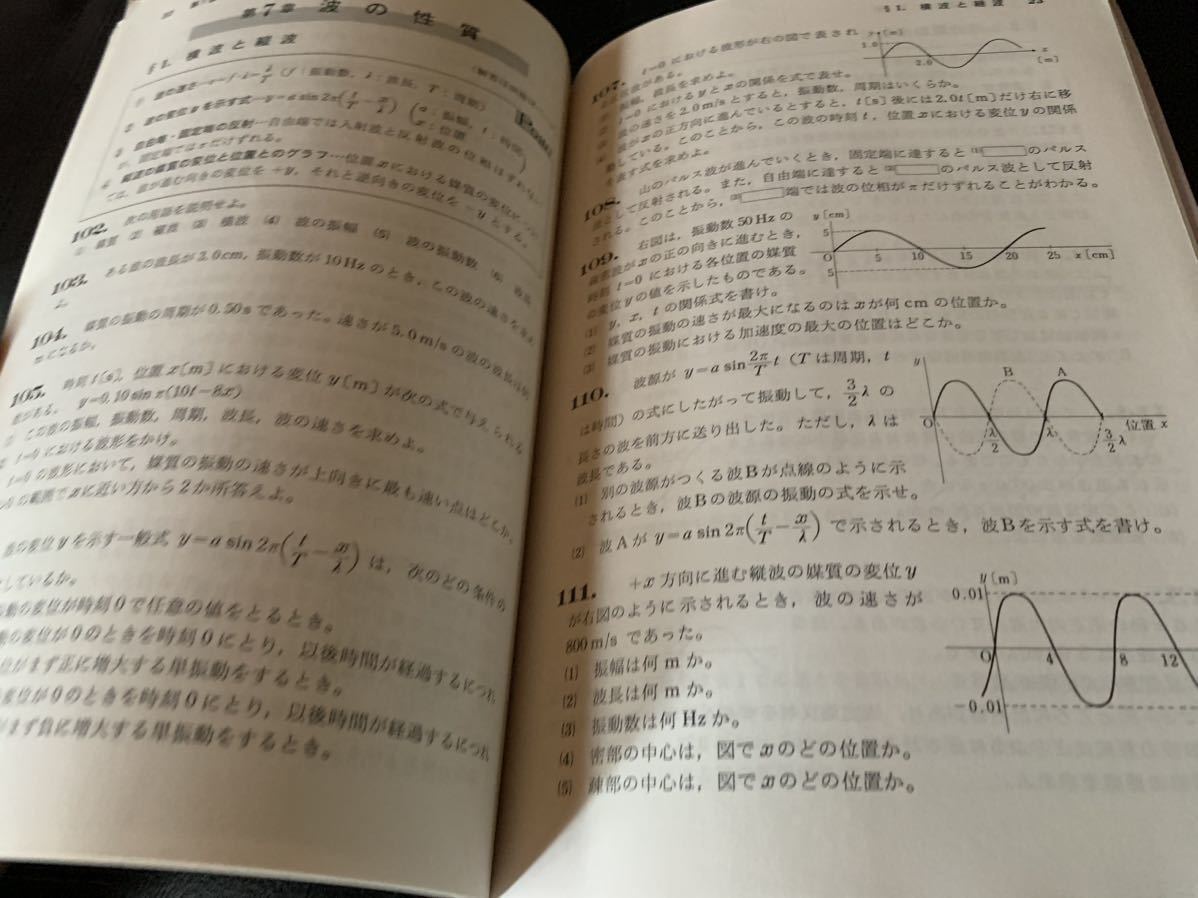 第7章 波の性質
§1. 横波と縦波
① 波の速さ…v=fλ=λ/T (f:振動数, λ:波長, T:周期)
② 波の変位yを示す式…y=a sin2π(t/T−x/λ) (a:振幅, t:時間 x:位置)
自由端・固定端の反射…自由端では入射波と反射波の位相はずれない
が, 固定端ではπだけずれる。
媒質の変位と位置とのグラフ…位置xにおける媒質の変位
ては, 波が進む向きの変位を+y, それと逆向きの変位を−yとする。
102. 次の用語を説明せよ。
(1) 媒質 (2) 縦波 (3) 横波 (4) 波の振幅 (5) 波の振動数 (6) 波長
103. ある波の波長が2.0cm, 振動数が10Hzのとき, この波の速さを求め
よ。
104. 媒質の振動の周期が0.50sであった。速さが5.0m/sの波の波長は何
mになるか。
105. 時刻t〔s〕, 位置x〔m〕における変位y〔m〕が次の式で与えられる
波がある。 y=0.10sinπ(10t−8x)
この波の振幅, 振動数, 周期, 波長, 波の速さを求めよ。
t=0における波形をかけ。
t=0の波形において, 媒質の振動の速さが上向きに最も速い点はどこか。
の範囲でxに近い方から2か所答えよ。
波の変位yを示す一般式 y=a sin2π(t/T−x/λ) は, 次のどの条件の
しているか。
の変位が時刻0で任意の値をとるとき。
変位が0のときを時刻0にとり, 以後時間が経過するにつれ
まず正に増大する単振動をするとき。
変位が0のときを時刻0にとり, 以後時間が経過するにつれ
まず負に増大する単振動をするとき。
§1. 横波と縦波 23
107. t=0における波形が右の図で表され
る波がある。
振幅, 波長を求めよ。
t=0におけるyとxの関係を式で表せ。
波の速さを2.0m/sとすると, 振動数, 周期はいくらか。
波がxの正方向に進んでいるとすると, t〔s〕後には2.0t〔m〕だけ右に移
動している。このことから, この波の時刻t, 位置xにおける変位yの関係
を表す式を求めよ。
y〔m〕
1.0
0
2.0
x
〔m〕
108. 山のパルス波が進んでいくとき, 固定端に達すると(1) のパルス
波として反射される。また, 自由端に達すると(2) のパルス波として反射
される。このことから, (3) 端では波の位相がπだけずれることがわかる。
109. 右図は, 振動数50Hzの
波がxの正の向きに進むとき,
時刻t=0における各位置の媒質
の変位yの値を示したものである。
(1) y, x, tの関係式を書け。
(2) 媒質の振動の速さが最大になるのはxが何cmの位置か。
(3) 媒質の振動における加速度の最大の位置はどこか。
y〔cm〕
5
O
5
5 10 15 20 25 x〔cm〕
110. 波源が y=a sin 2π/T t (Tは周期, t
は時間)の式にしたがって振動して, 3/2 λの
長さの波を前方に送り出した。ただし, λは
波長である。
(1) 別の波源がつくる波Bが点線のように示
されるとき, 波Bの波源の振動の式を示せ。
(2) 波Aが y=a sin2π(t/T−x/λ) で示されるとき, 波Bを示す式を書け。
y
B A
O λ/2 λ 3/2 λ
位置x
111. +x方向に進む縦波の媒質の変位y
が右図のように示されるとき, 波の速さが
800m/sであった。
(1) 振幅は何mか。
(2) 波長は何mか。
(3) 振動数は何Hzか。
(4) 密部の中心は, 図でxのどの位置か。
(5) 疎部の中心は, 図でxのどの位置か。
y〔m〕
0.01
O 4 8 12
−0.01